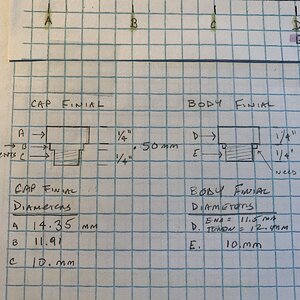 A B C D
CAP FINIAL BODY FINIAL
A 1/4" D 1/4"
B .50mm
C 1/4" E 1/4"
CAP FINIAL BODY FINIAL
DIAMETERS DIAMETERS
A 14.35 mm D. END = 11.5 mm
TENON = 12.4mm
B 11.91 E. 10.mm
C 10. mm